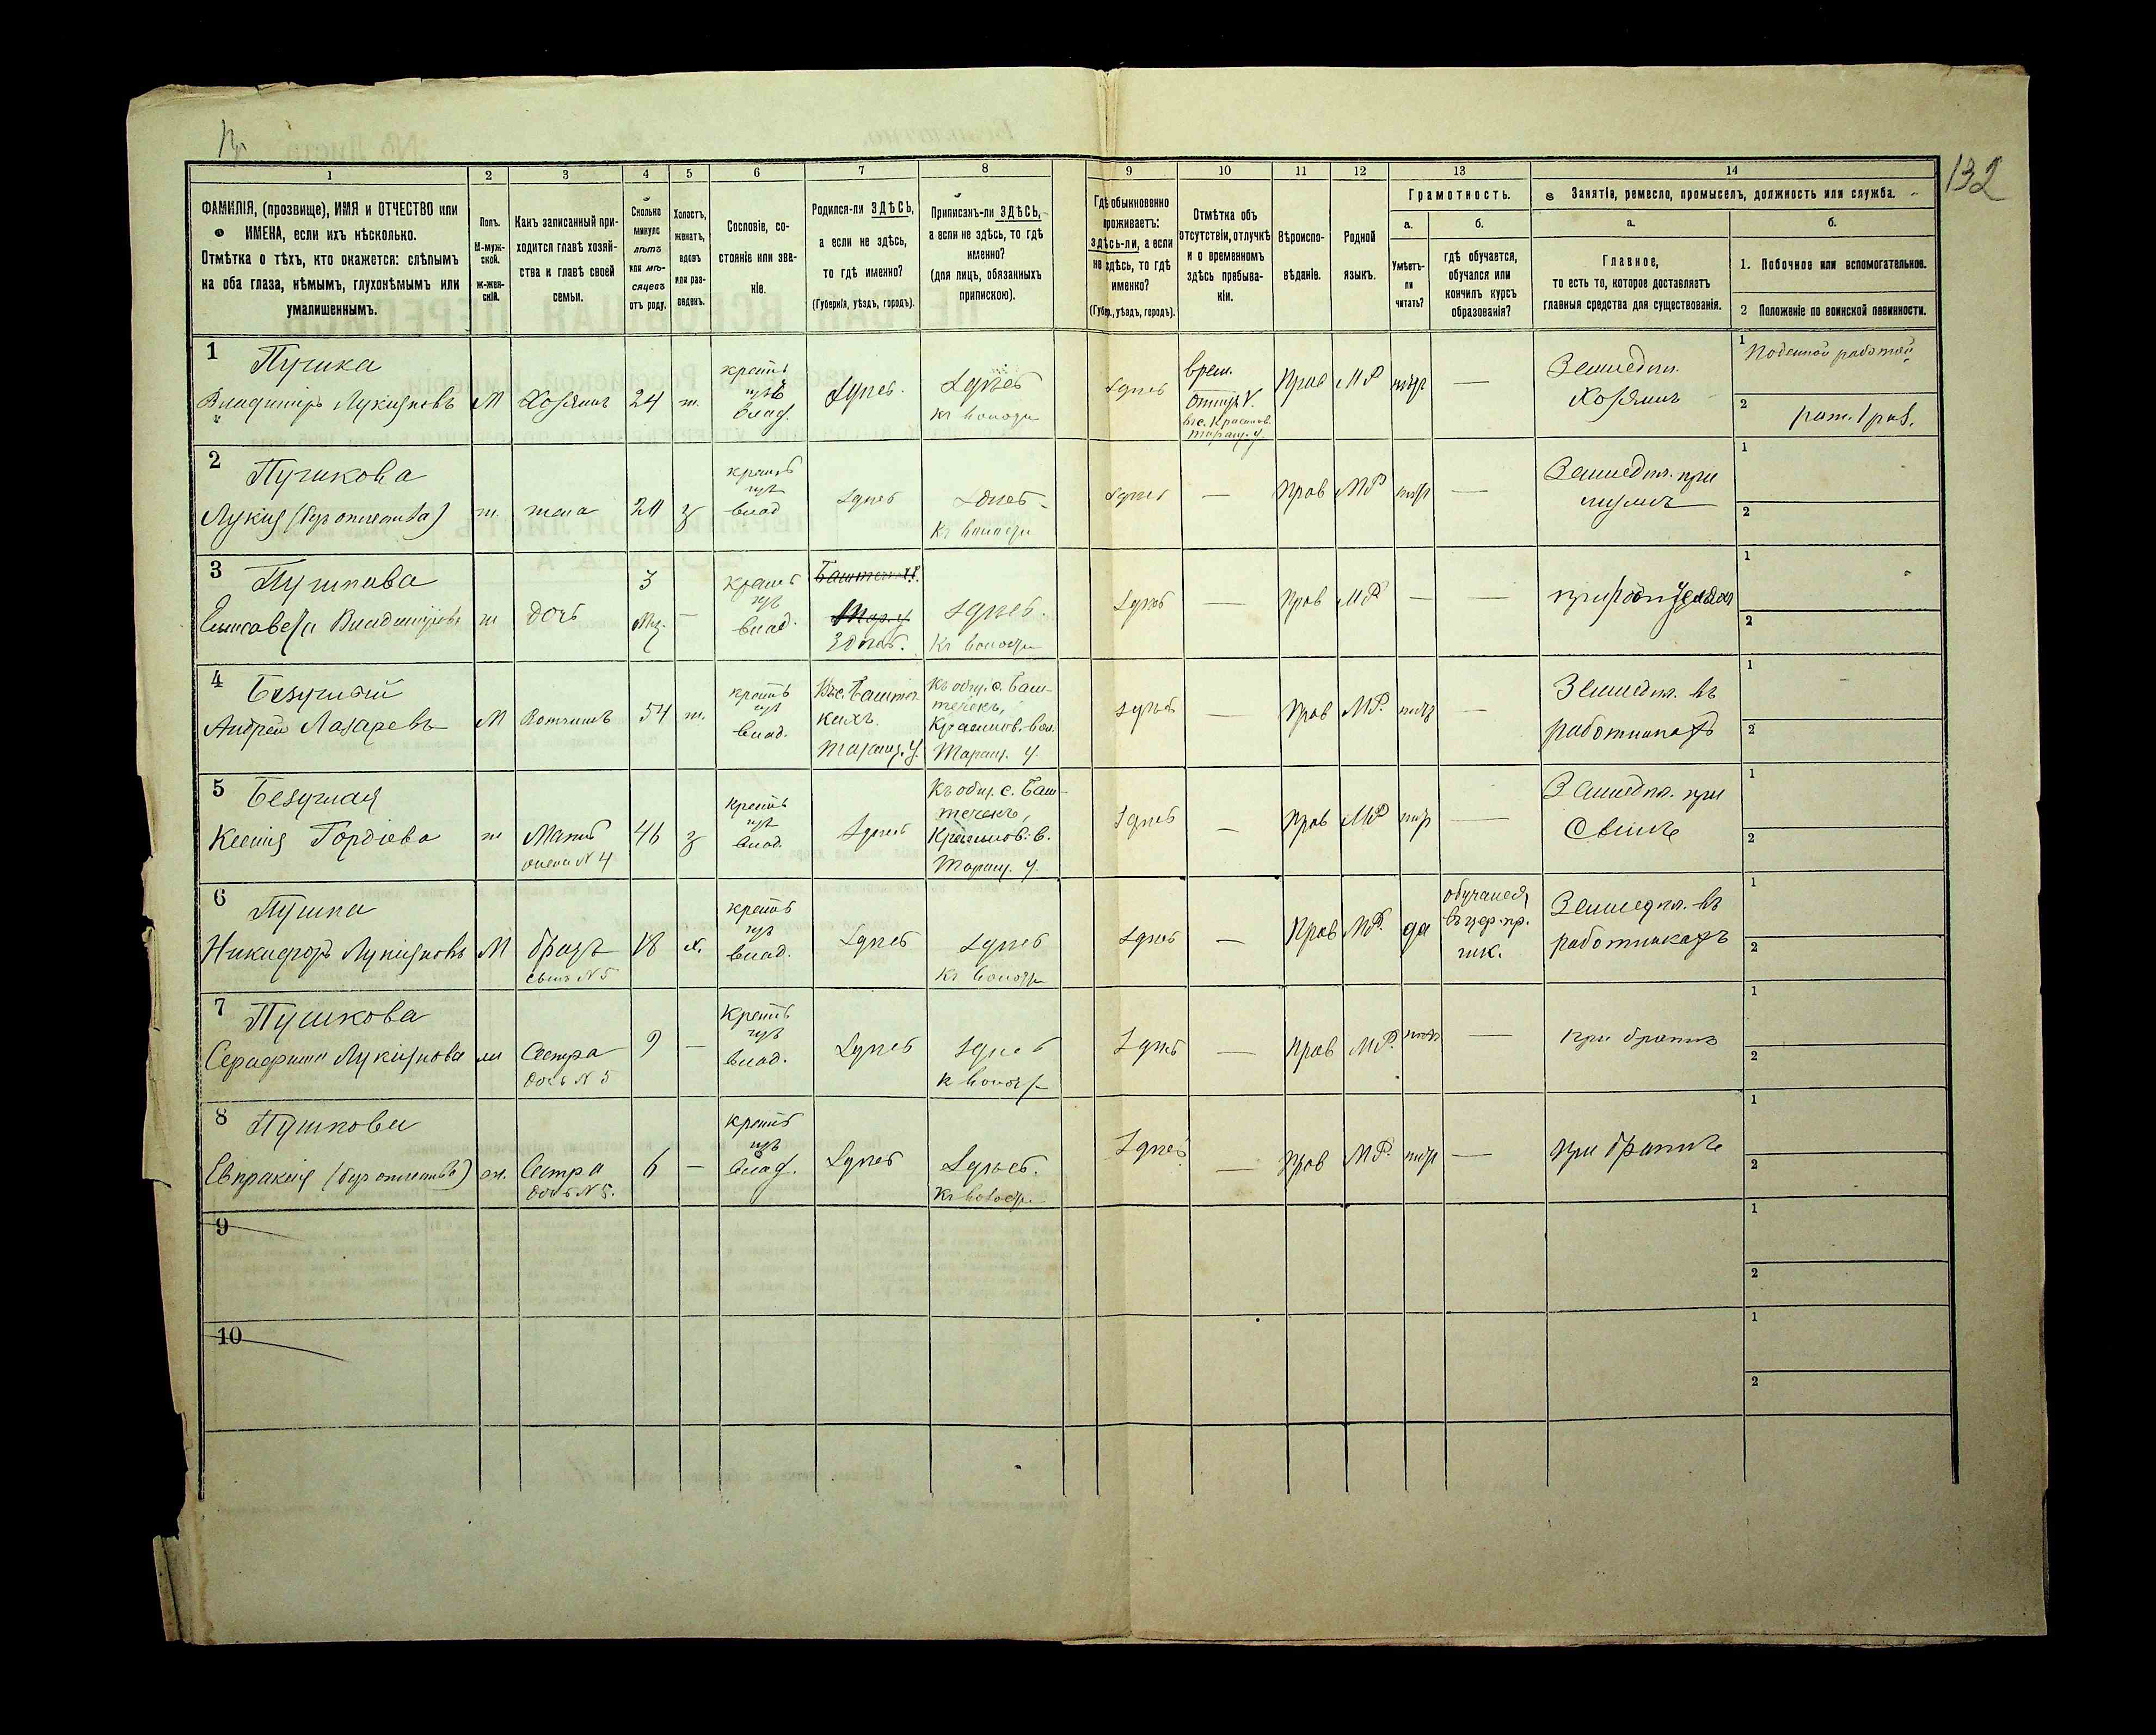 132
1
2
3
4
5
6
7
8
9
10
11
12
13
14
ФАМИЛІЯ, (прозвище), ИМЯ и ОТЧЕСТВО или
ИМЕНА, если ихъ нѣсколько.
Отмѣтка о тѣхъ, кто окажется: слѣпымъ
на оба глаза, нѣмымъ, глухонѣмымъ или
умалишеннымъ.
Полъ.
М-муж-
ской.
ж-жен-
скій.
Какъ записанный при-
ходится главѣ хозяй-
ства и главѣ своей
семьи.
Сколько
минуло
лѣтъ
или мѣ-
сяцевъ
отъ роду.
Холостъ,
женатъ,
вдовъ
или раз-
веденъ.
Сословіе, со-
стояніе или зва-
ніе.
Родился-ли ЗДѢСЬ,
а если не здѣсь,
то гдѣ именно?
(Губернія, уѣздъ, городъ).
Приписанъ-ли ЗДѢСЬ,
а если не здѣсь, то гдѣ
именно?
(для лицъ, обязанныхъ
припискою).
Гдѣ обыкновенно
проживаетъ:
здѣсь-ли, а если
не здѣсь, то гдѣ
именно?
(Губер., уѣздъ, городъ).
Отмѣтка объ
отсутствіи, отлучкѣ
и о временномъ
здѣсь пребыва-
ніи.
Вѣроиспо-
вѣданіе.
Родной
языкъ.
Грамотность.
а.
Умѣетъ-
ли
читать?
б.
гдѣ обучается,
обучался или
кончилъ курсъ
образованія?
Занятія, ремесло, промыселъ, должность или служба.
а.
Главное,
то есть то, которое доставляетъ
главныя средства для существованія.
б.
1. Побочное или вспомогательное.
2 Положеніе по воинской повинности.
1 Пушка
Владиміръ Лукіяновъ М Хозяинъ 24 ж. крестьъ изъ влад. здѣсь здѣсь здѣсь врем. Прав МР нѣтъ — Земледѣл. Хозяинъ
1 Поденной работой
2 рат. 1 раз.
2 Пушкова
Лукія (безъ отчества) ж. жена 20 з крестъ изъ влад здѣсь здѣсь здѣсь — Прав МР нѣтъ — Земледѣл. при мужѣ
1
2
3 Пушкова
Елисавета Владимірова ж дочь 3 мѣ. — крестъ изъ влад. Здѣсь. здѣсь. здѣсь — Прав МР — — при родителяхъ
1
2
4 Безучный
Андрей Лазаревъ М Вотчимъ 54 ж. крестъ изъ влад. Въ с. Баштеч-
кахъ.
Таращ. у.
Къ общ. с. Баш-
течекъ,
Красилов. вол.
Таращ. у.
здѣсь — Прав МР. нѣтъ — Земледѣл. въ
работникахъ
1
2
5 Безучная
Ксенія Гордіева ж Мать
жена № 4
46 з крестъ изъ влад. здѣсь
Къ общ. с. Баш-
течекъ,
Красилов. в.
Таращ. у.
здѣсь — Прав МР нѣтъ — Земледѣл. при
1
2
6 Пушка
Никифоръ Лукіяновъ М братъ
сынъ № 5
18 х. крестъ изъ влад. здѣсь здѣсь здѣсь — Прав МР. да
обучался
въ цер.-пр.
шк.
Земледѣл. въ
работникахъ
1
2
7 Пушкова
Серафима Лукіянова ж Сестра
дочь № 5
9 — крестъ изъ влад. здѣсь здѣсь здѣсь — Прав МР. нѣтъ — при братѣ
1
2
8 Пушкова
Евпраксія (безъ отчества) ж. Сестра
дочь № 5.
6 — крестъ изъ влад. здѣсь здѣсь. здѣсь — Прав МР. нѣтъ — при братѣ
1
2
9
1
2
10
1
2